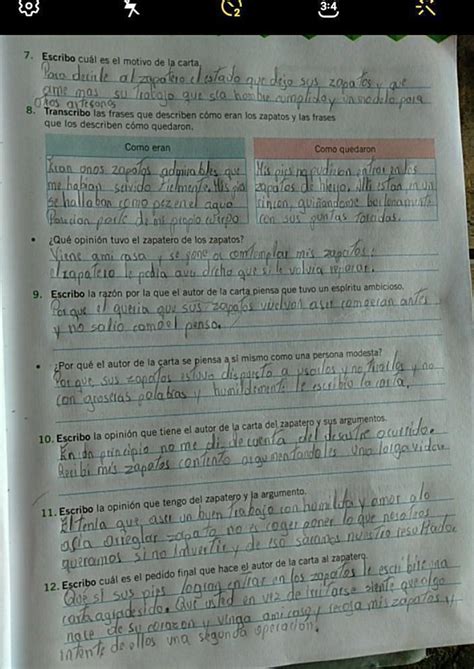 3:4
2
7. Escribo cuál es el motivo de la carta.
Para decirle al zapatero el estado que dejo sus zapatos y que
ame mas su trabajo que sea hombre cumplido y un modelo para
otros artesanos
8. Transcribo las frases que describen cómo eran los zapatos y las frases
que los describen cómo quedaron.
Como eran
Como quedaron
Eran unos zapatos admirables que
me habían servido fielmente. Mis pies
se hallaban como pez en el agua
Parecían parte de mi propio cuerpo
Mis pies no pudieron entrar en los
zapatos de hierro. Alli estan en un
rincon, guiñandome burlonamente
con sus puntas torcidas.
• ¿Qué opinión tuvo el zapatero de los zapatos?
Viene ami casa, se pone a contemplar mis zapatos:
el zapatero le podia aver dicho que si le volvia reparar.
9. Escribo la razón por la que el autor de la carta piensa que tuvo un espíritu ambicioso.
Por que el queria que sus zapatos vuelvan a ser como eran antes
y no salio como el penso.
• ¿Por qué el autor de la carta se piensa a sí mismo como una persona modesta?
Por que sus zapatos estava dispuesto a usarlos y no tirarlos y no
con groserias palabras y humildemente le escribio la carta.
10. Escribo la opinión que tiene el autor de la carta del zapatero y sus argumentos.
En un principio no me di de cuenta del desastre ocurrido.
Recibi mis zapatos contento argumentandoles una larga vida.
11. Escribo la opinión que tengo del zapatero y la argumento.
El tenia que aser un buen trabajo con humilda y amor a lo
asia arreglar zapato no es coger poner lo que nosotros
queramos si no invertir y de eso sacamos nuestro resultado.
12. Escribo cuál es el pedido final que hace el autor de la carta al zapatero.
Que si sus pies logran entrar en los zapatos le escribire una
carta agradesido. Que usted en vez de irritarse siente que algo
nase de su corazon y venga ami casa y recoja mis zapatos y
intente de ellos una segunda operacion.